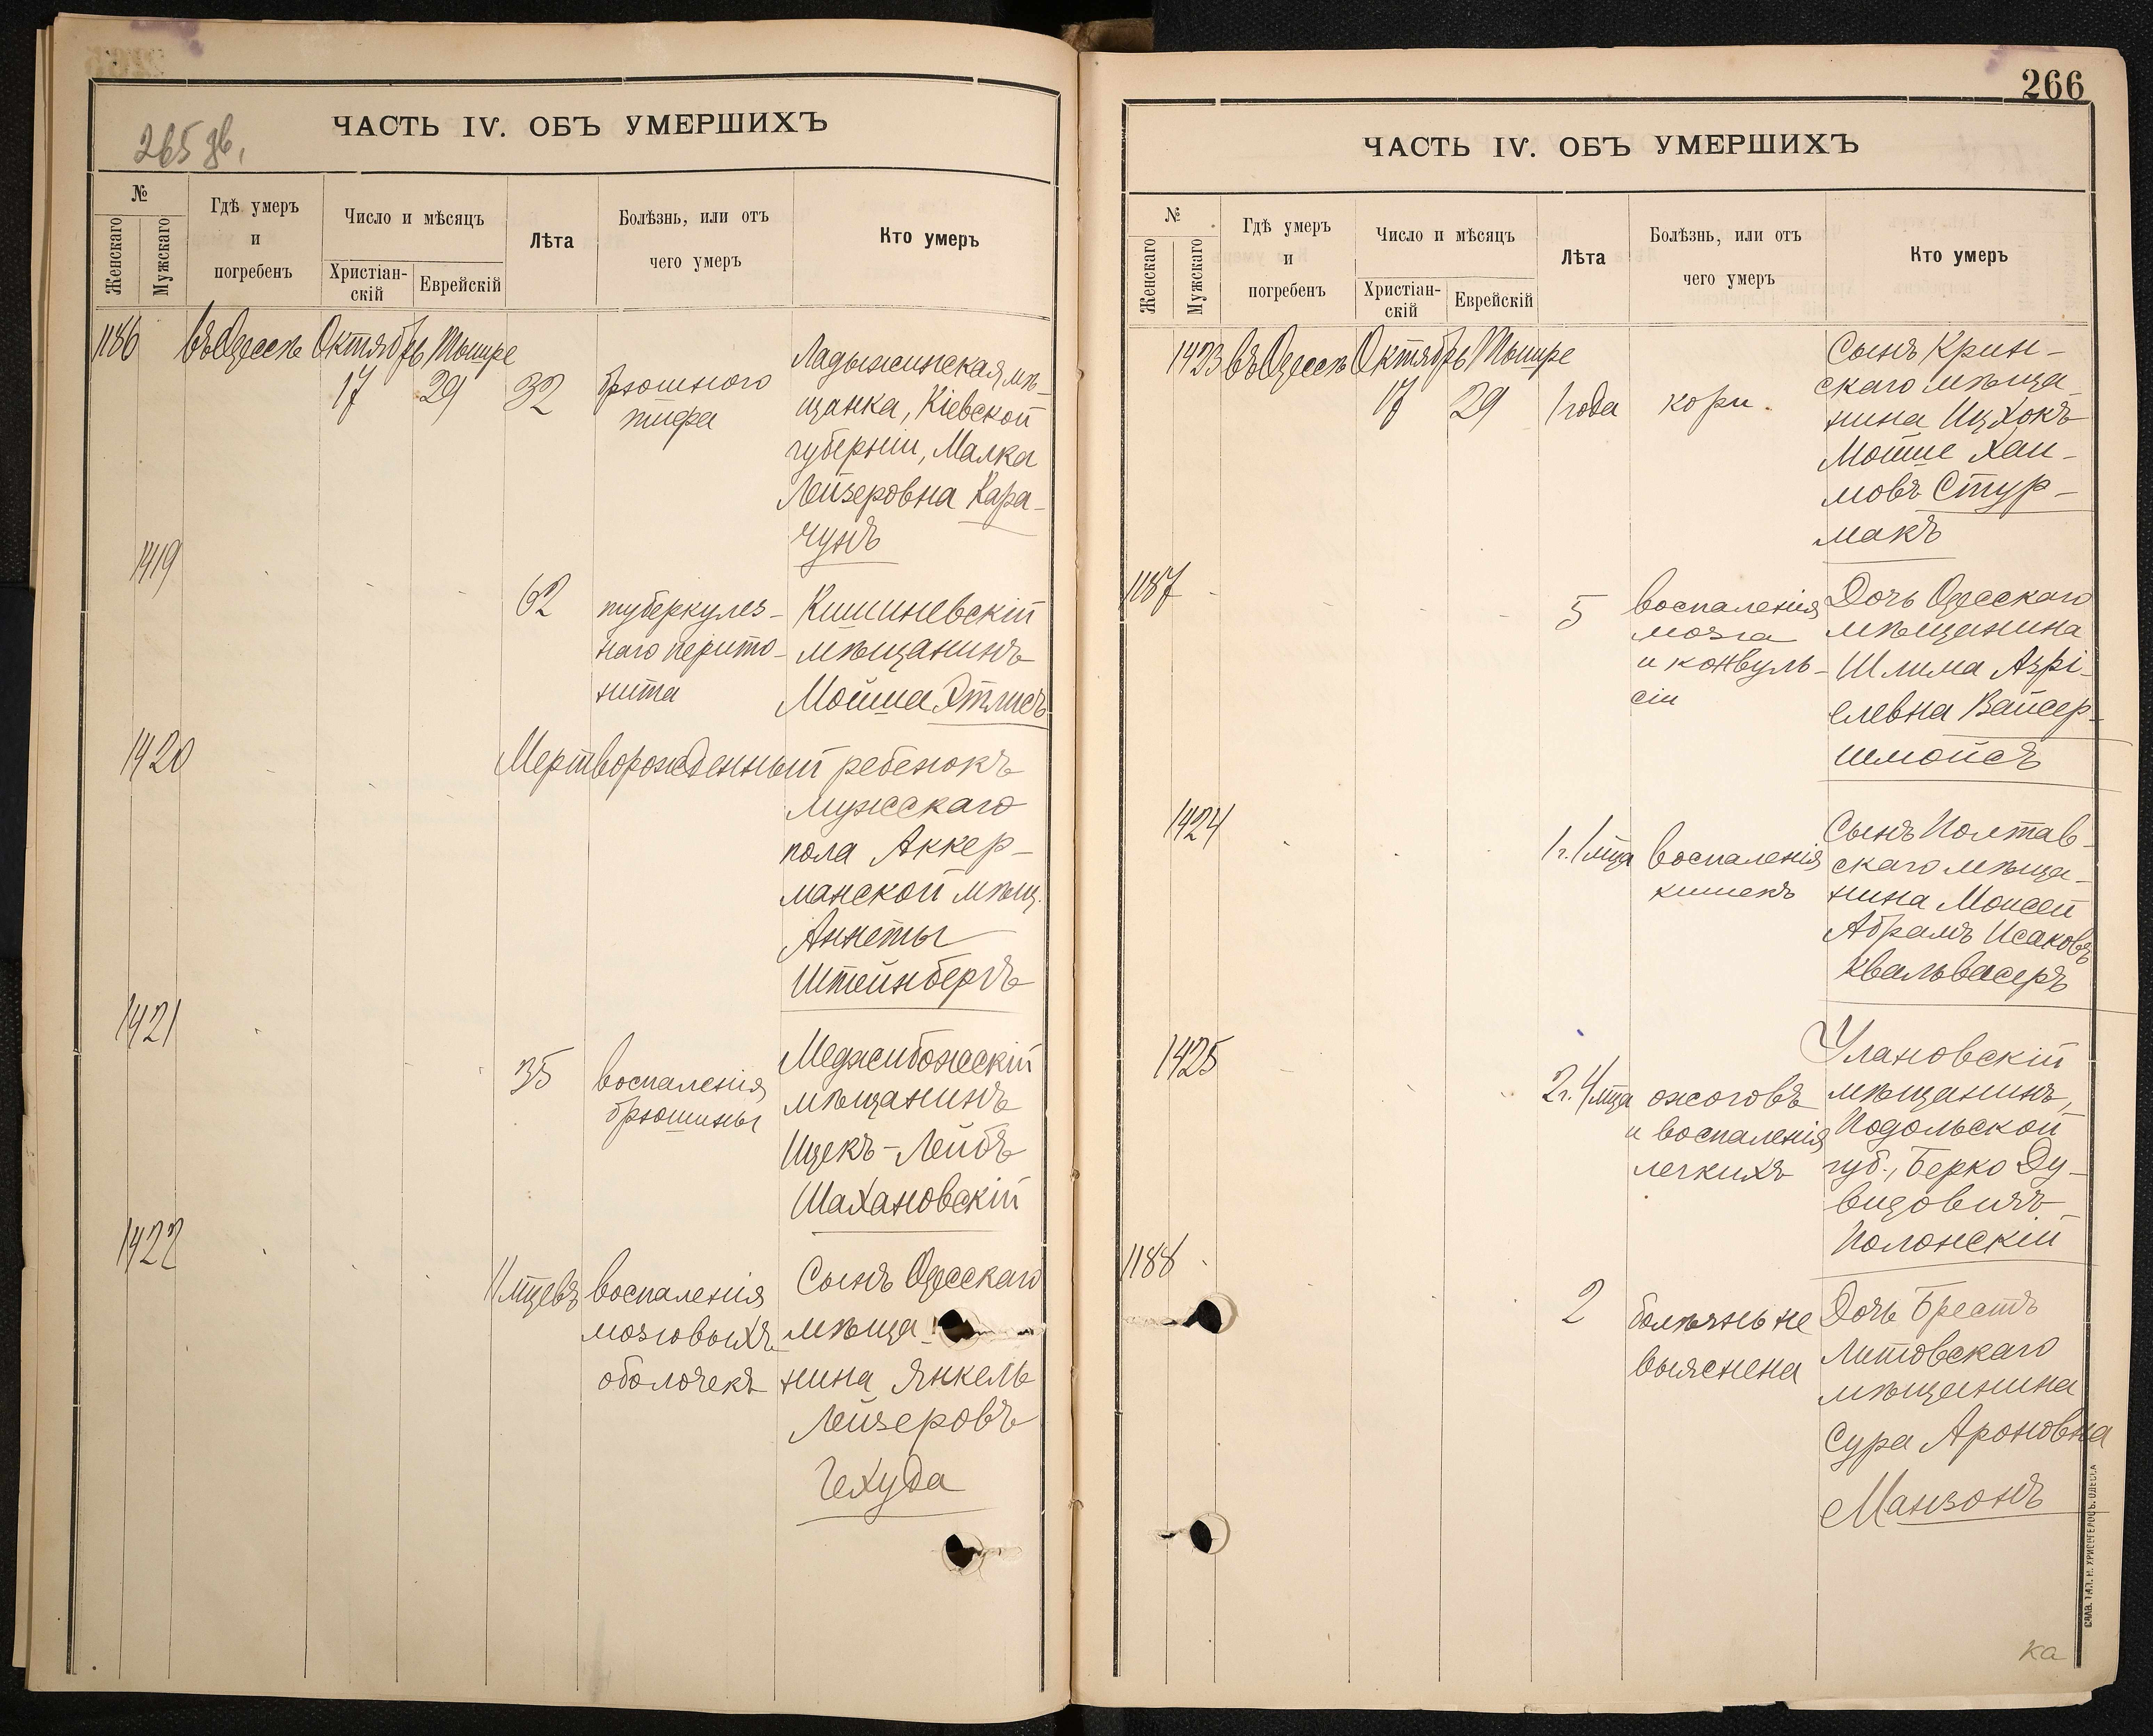 265 зв.
ЧАСТЬ IV. ОБЪ УМЕРШИХЪ
№
Женскаго
Мужскаго
Гдѣ умеръ
и
погребенъ
Число и мѣсяцъ
Христіан-
скій
Еврейскій
Лѣта
Болѣзнь, или отъ
чего умеръ
Кто умеръ
1186 въ Одессѣ Октябрь Тышре
17 29 32 брюшного
тифа
Ладыжинская мѣ-
щанка, Кіевской
губерніи, Малка
Лейзеровна Кара-
чунъ
1419
62 туберкулез-
наго перито-
нита
Кишиневскій
мѣщанинъ
Мойша Этлисъ
1420
Мертворожденный ребенокъ
мужескаго
пола Аккер-
манской мѣщ.
Аннеты
Штейнбергъ
1421
35 воспаленія
брюшины
Меджибожскій
мѣщанинъ
Ицекъ-Лейбъ
Шахановскій
1422
11 мцевъ воспаленія
мозговыхъ
оболочекъ
Сынъ Одесскаго
мѣща
нина Янкель
Лейзеровъ
Чехуда
266
ЧАСТЬ IV. ОБЪ УМЕРШИХЪ
№
Женскаго
Мужскаго
Гдѣ умеръ
и
погребенъ
Число и мѣсяцъ
Христіан-
скій
Еврейскій
Лѣта
Болѣзнь, или отъ
чего умеръ
Кто умеръ
1423 въ Одессѣ Октябрь Тышре
17 29 1 года кори.
Сынъ Крин-
скаго мѣща
нина Ицхокъ
Мойше Хаи-
мовъ Стур-
макъ
1187
5 воспаленія
мозга
и конвуль-
сіи
Дочь Одесскаго
мѣщанина
Шлима Азрі-
елевна Вайсер-
шмойсъ
1424
1 г. 1 мца воспаленія
кишекъ
Сынъ Полтав-
скаго мѣща-
нина Моисей
Абрамъ Исаковъ
Квальвасеръ
1425
2 г. 4 мца ожоговъ
и воспаленія
легкихъ
Улановскій
мѣщанинъ,
Подольской
губ., Берко Ду-
видовичъ
Полонскій
1188
2 болѣзнь не
выяснена
Дочь Брестъ
Литовскаго
мѣщанина
Сура Ароновна
Манзонъ
СЛАВ. ТИП. Н. ХРИСОГЕЛОСЪ. ОДЕССА
ка